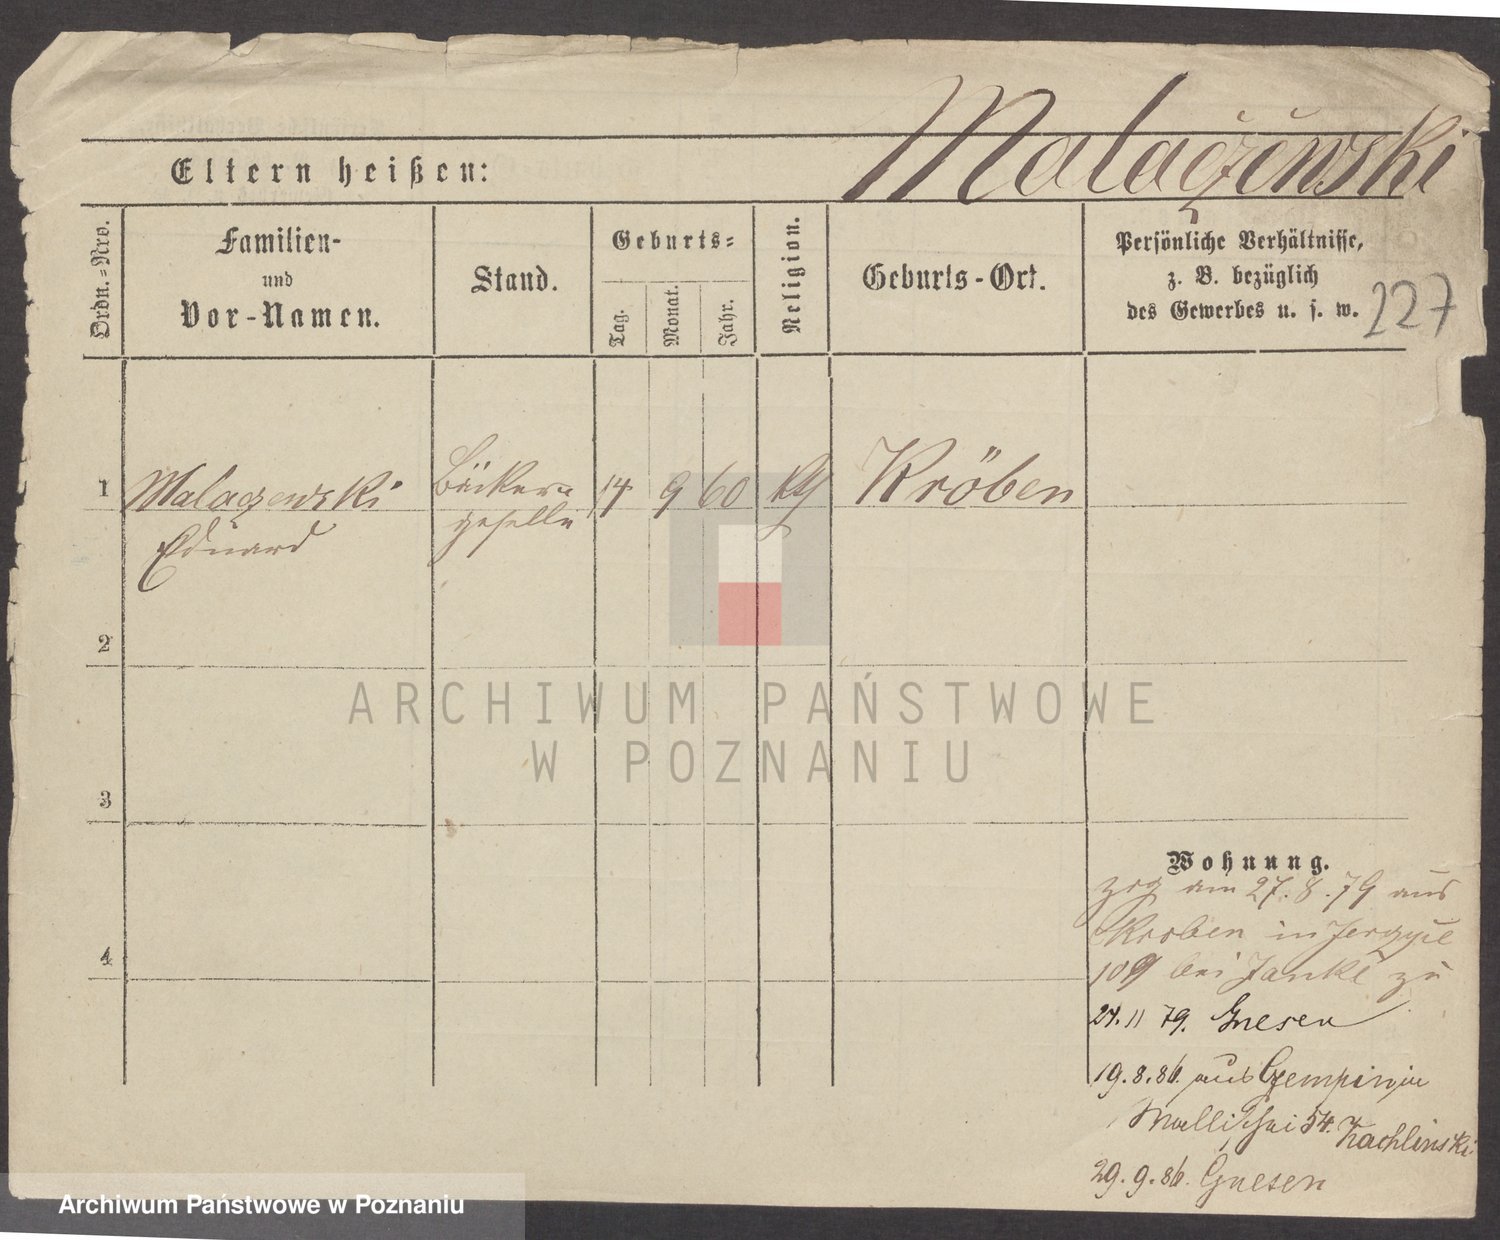 Malaczewski
Eltern heißen:
Ordn.=Nro.
Familien-
und
Vor-Namen.
Stand.
Geburts=
Tag.
Monat.
Jahr.
Religion.
Geburts-Ort.
Persönliche Verhältnisse,
z. B. bezüglich
des Gewerbes u. s. w.
227
1
Malaczewski
Eduard
Bäcker=
geselle
14
9
60
Kröben
2
3
4
Wohnung.
zog am 27.8.79 aus
Kroben in
109 bei Janke zu
24.11 79. Gnesen
19.8.86. aus Czempin in
Wallischei 54. Zachlinski
29.9.86. Gnesen
ARCHIWUM PAŃSTWOWE
W POZNANIU
Archiwum Państwowe w Poznaniu